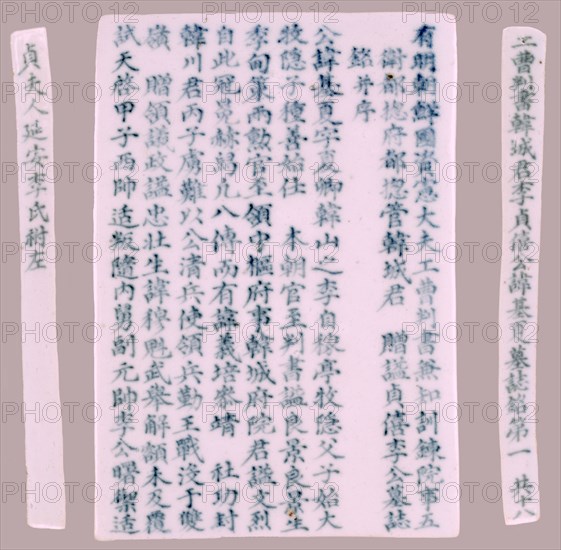 工曹判書韓城君李貞僖公諱基夏墓誌銘第一 共八
有明朝鮮國資憲大夫工曹判書兼知訓鍊院事五
衛都摠府都摠管韓城君 贈諡貞僖李公墓誌
銘并序
公諱基夏字夏卿韓山之李自稼亭牧隱父子始大
牧隱子種善始仕 本朝官至判書諡良景良景生
季甸策兩勳官至領中樞府事韓城府院君諡文烈
自此冠冕赫舃凡八傳而有諱義培參靖 社功封
韓川君丙子虜難以公清兵使領兵勤王戰沒于雙
嶺 贈領議政諡忠壯生諱穆魁武舉解額未及覆
試天啓甲子西帥适叛隨內舅副元帥李公曙禦适
貞夫人延安李氏祔左